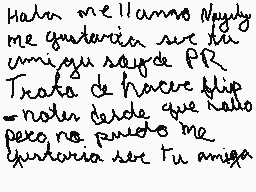 Hala me llamo Nayely
me gustaria ser tu
amigu soy de PR
Trata de hacer flip
-notes desde que
pero no puedo me
gustaria ser tu amiga